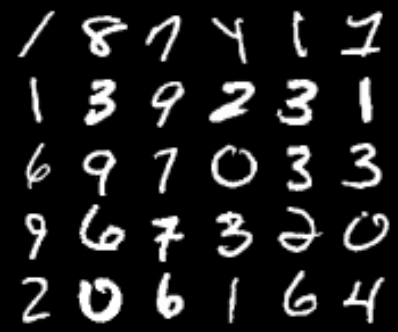 1 8 7 4 1 1
1 3 9 2 3 1
6 9 7 0 3 3
9 6 7 3 2 0
2 0 6 1 6 4